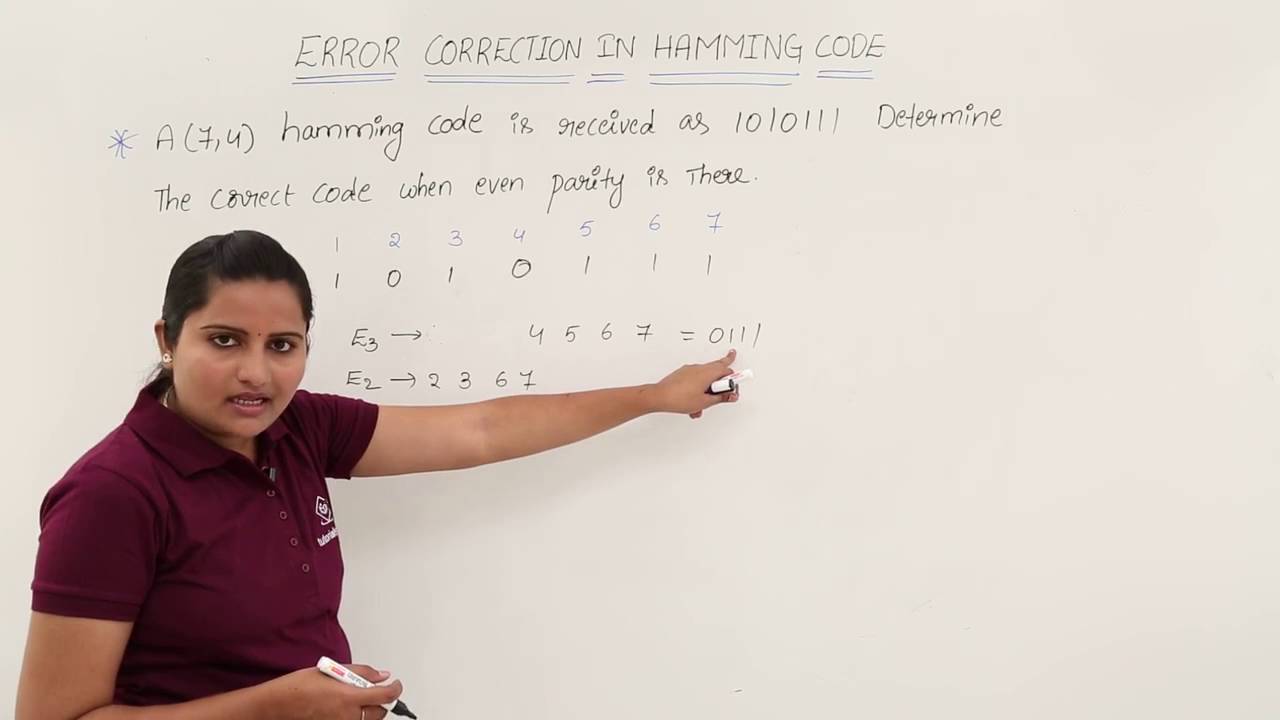 ERROR CORRECTION IN HAMMING CODE
* A(7,4) hamming code is received as 1010111 Determine
The correct code when even parity is There.
1 2 3 4 5 6 7
1 0 1 0 1 1 1
E3 → 4 5 6 7 = 0111
E2 → 2 3 6 7